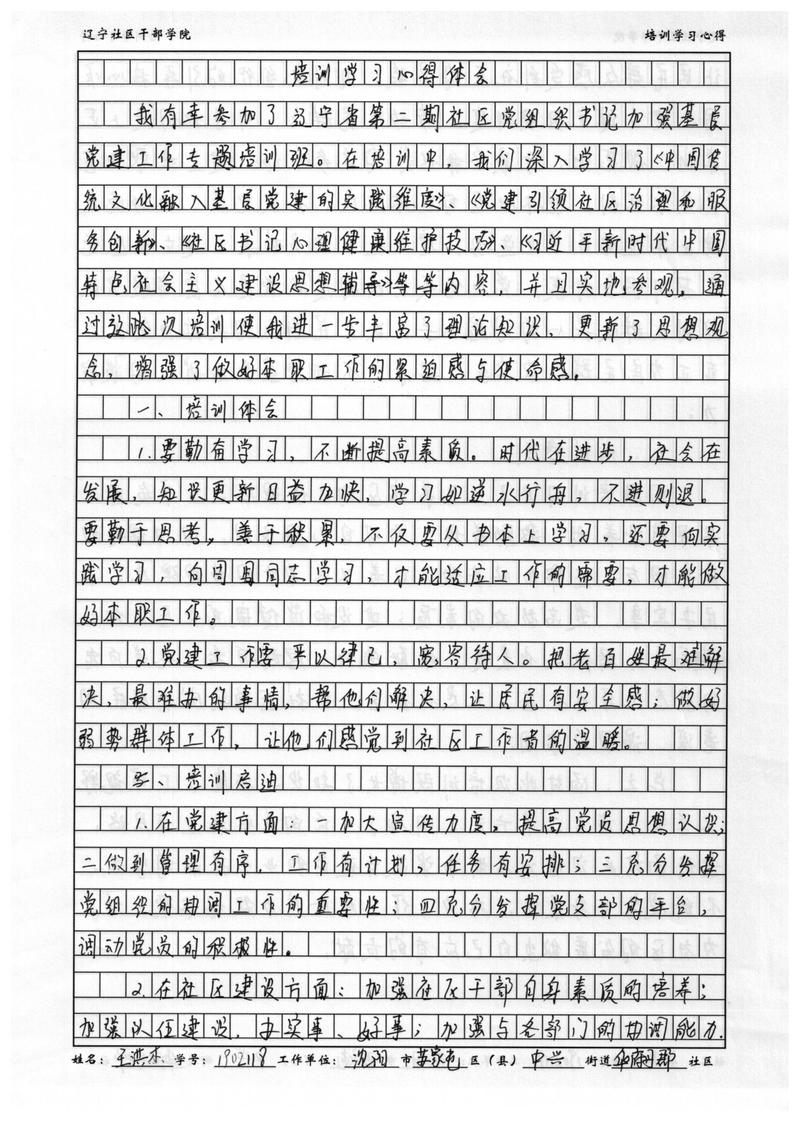 辽宁社区干部学院 培训学习心得
培训学习心得体会
我有幸参加了辽宁省第二期社区党组织书记加强基层
党建工作专题培训班。在培训中，我们深入学习了《中国传
统文化融入基层党建的实践维度》、《党建引领社区治理和服
务创新》、《社区书记心理健康维护技巧》、《习近平新时代中国
特色社会主义建设思想辅导》等等内容，并且实地参观，通
过这次培训使我进一步丰富了理论知识，更新了思想观
念，增强了做好本职工作的紧迫感与使命感。
一、培训体会
1.要勤有学习，不断提高素质。时代在进步，社会在
发展，知识更新日益加快，学习如逆水行舟，不进则退。
要勤于思考，善于积累，不仅要从书本上学习，还要向实
践学习，向周围同志学习，才能适应工作的需要，才能做
好本职工作。
2.党建工作要严以律己，宽容待人。把老百姓最难解
决，最难办的事情，帮他们解决，让居民有安全感；做好
弱势群体工作，让他们感觉到社区工作者的温暖。
二、培训启迪
1.在党建方面：一加大宣传力度，提高党员思想认识；
二做到管理有序，工作有计划，任务有安排；三充分发挥
党组织的协调工作的重要性；四充分发挥党支部的平台，
调动党员的积极性。
2.在社区建设方面：加强社区干部自身素质的培养；
加强队伍建设，办实事、好事；加强与各部门的协调能力.
姓名：王洪杰 学号：1902118 工作单位：沈阳 市 苏家屯 区（县） 中兴 街道 社区